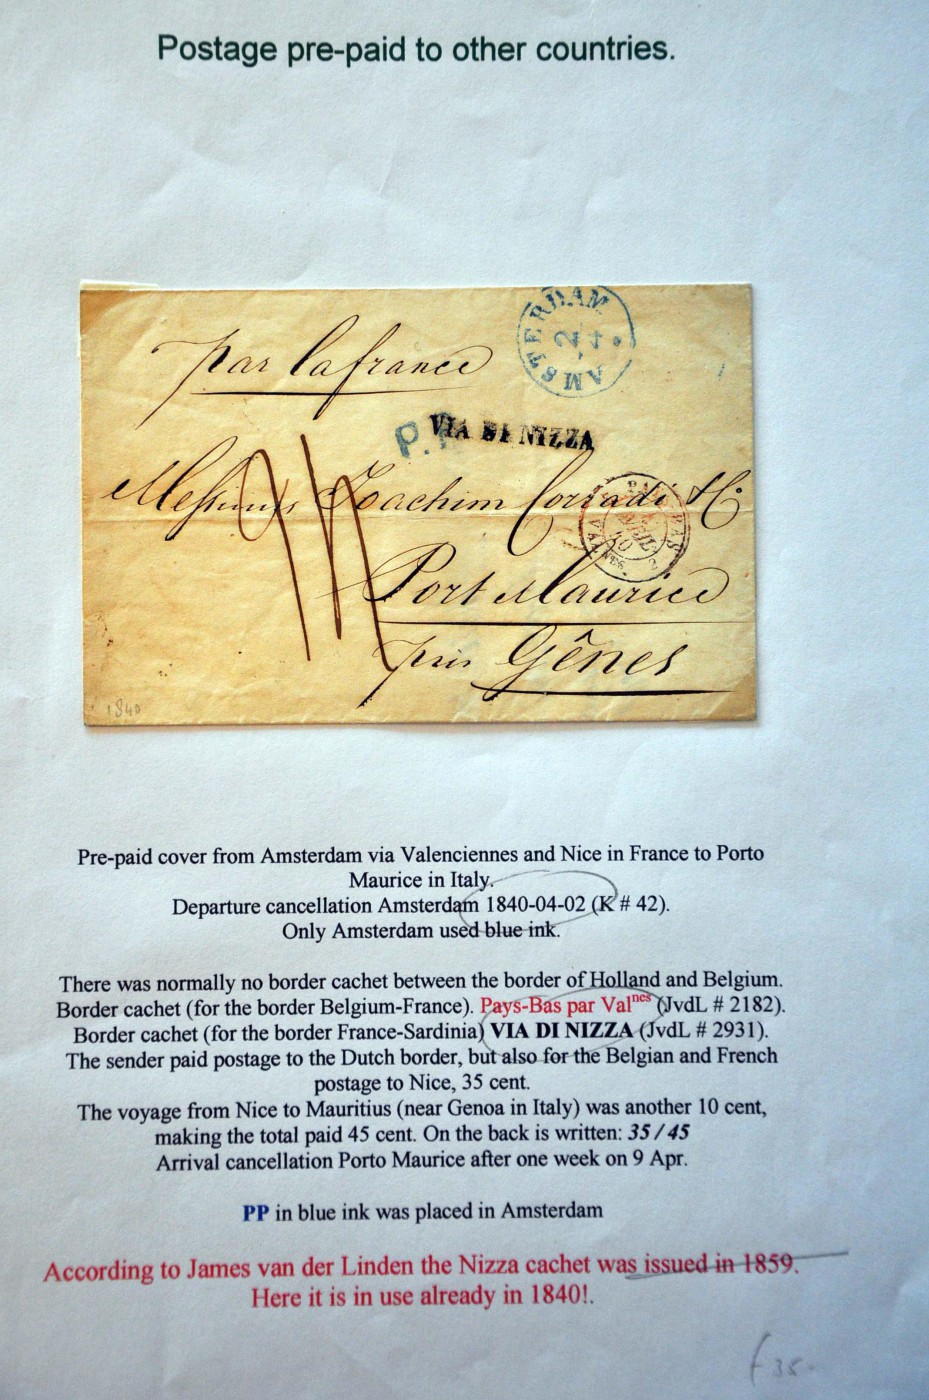 Postage pre-paid to other countries.
par la france
AMSTERDAM
2
4
P.P.
VIA DI NIZZA
Messieurs Joachim Corradi & C°
PAYS-BAS
AVRIL
40
Port Maurice
près Gênes
1840
Pre-paid cover from Amsterdam via Valenciennes and Nice in France to Porto
Maurice in Italy.
Departure cancellation Amsterdam 1840-04-02 (K # 42).
Only Amsterdam used blue ink.
There was normally no border cachet between the border of Holland and Belgium.
Border cachet (for the border Belgium-France). Pays-Bas par Valnes (JvdL # 2182).
Border cachet (for the border France-Sardinia) VIA DI NIZZA (JvdL # 2931).
The sender paid postage to the Dutch border, but also for the Belgian and French
postage to Nice, 35 cent.
The voyage from Nice to Mauritius (near Genoa in Italy) was another 10 cent,
making the total paid 45 cent. On the back is written: 35 / 45
Arrival cancellation Porto Maurice after one week on 9 Apr.
PP in blue ink was placed in Amsterdam
According to James van der Linden the Nizza cachet was issued in 1859.
Here it is in use already in 1840!.